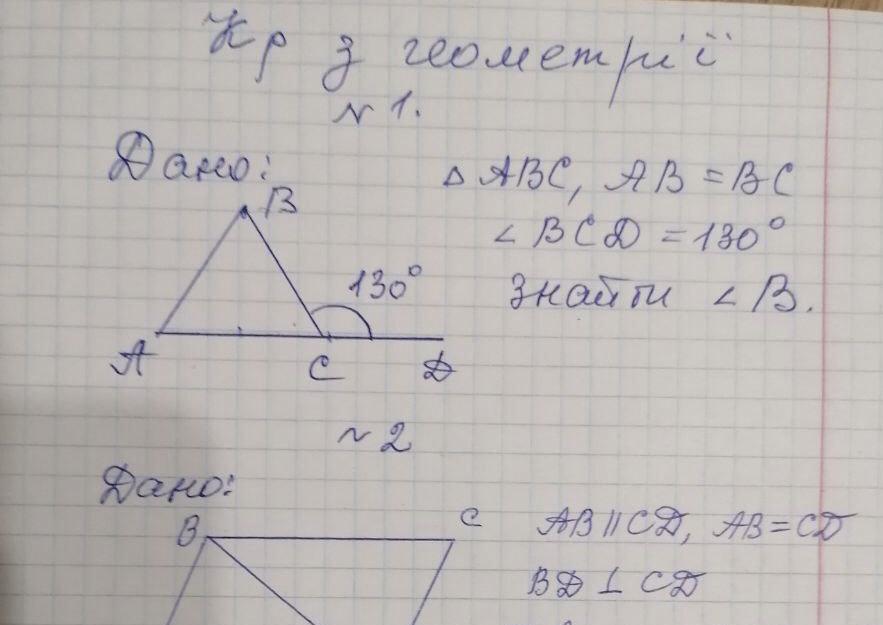 Кр з геометрії
№ 1.
Дано:
△ ABC, AB = BC
∠ BCD = 130°
Знайти ∠ B.
B
130°
A C D
№ 2
Дано:
B C
AB || CD, AB = CD
BD ⊥ CD